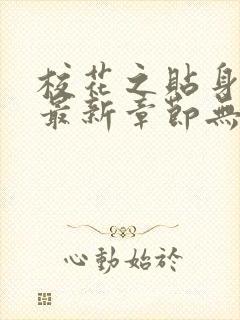 校花之貼身
最新章節無
心動始於